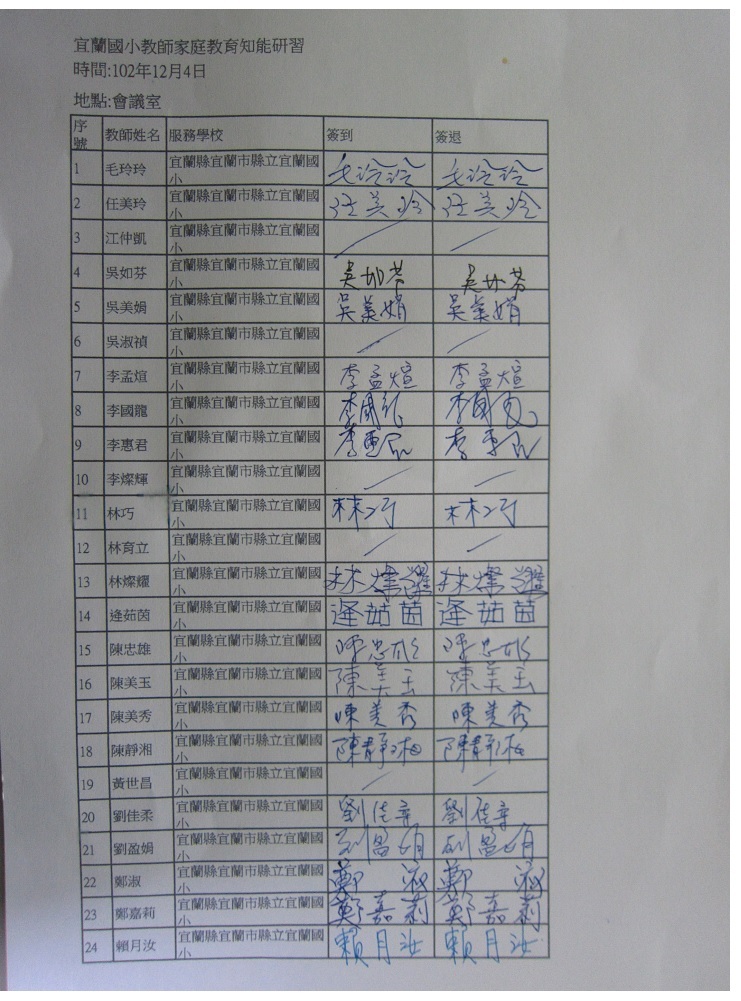 宜蘭國小教師家庭教育知能研習
時間:102年12月4日
地點:會議室
序號 教師姓名 服務學校 簽到 簽退
1 毛玲玲 宜蘭縣宜蘭市縣立宜蘭國小 毛玲玲 毛玲玲
2 任美玲 宜蘭縣宜蘭市縣立宜蘭國小 任美玲 任美玲
3 江仲凱 宜蘭縣宜蘭市縣立宜蘭國小 / /
4 吳如芬 宜蘭縣宜蘭市縣立宜蘭國小 吳如芬 吳如芬
5 吳美娟 宜蘭縣宜蘭市縣立宜蘭國小 吳美娟 吳美娟
6 吳淑禎 宜蘭縣宜蘭市縣立宜蘭國小 / /
7 李孟煊 宜蘭縣宜蘭市縣立宜蘭國小 李孟煊 李孟煊
8 李國龍 宜蘭縣宜蘭市縣立宜蘭國小 李國龍 李國龍
9 李惠君 宜蘭縣宜蘭市縣立宜蘭國小 李惠君 李惠君
10 李燦輝 宜蘭縣宜蘭市縣立宜蘭國小 / /
11 林巧 宜蘭縣宜蘭市縣立宜蘭國小 林巧 林巧
12 林育立 宜蘭縣宜蘭市縣立宜蘭國小 / /
13 林燦耀 宜蘭縣宜蘭市縣立宜蘭國小 林燦耀 林燦耀
14 逄茹茵 宜蘭縣宜蘭市縣立宜蘭國小 逄茹茵 逄茹茵
15 陳忠雄 宜蘭縣宜蘭市縣立宜蘭國小 陳忠雄 陳忠雄
16 陳美玉 宜蘭縣宜蘭市縣立宜蘭國小 陳美玉 陳美玉
17 陳美秀 宜蘭縣宜蘭市縣立宜蘭國小 陳美秀 陳美秀
18 陳靜湘 宜蘭縣宜蘭市縣立宜蘭國小 陳靜湘 陳靜湘
19 黃世昌 宜蘭縣宜蘭市縣立宜蘭國小 / /
20 劉佳柔 宜蘭縣宜蘭市縣立宜蘭國小 劉佳柔 劉佳柔
21 劉盈娟 宜蘭縣宜蘭市縣立宜蘭國小 劉盈娟 劉盈娟
22 鄭淑 宜蘭縣宜蘭市縣立宜蘭國小 鄭淑 鄭淑
23 鄭嘉莉 宜蘭縣宜蘭市縣立宜蘭國小 鄭嘉莉 鄭嘉莉
24 賴月汝 宜蘭縣宜蘭市縣立宜蘭國小 賴月汝 賴月汝